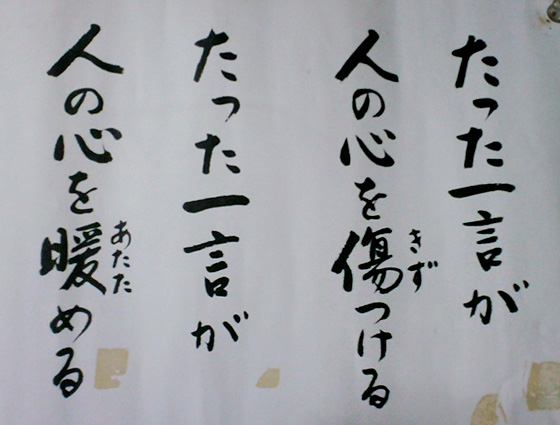 たった一言が
人の心を傷つける
きず
たった一言が
人の心を暖める
あたた